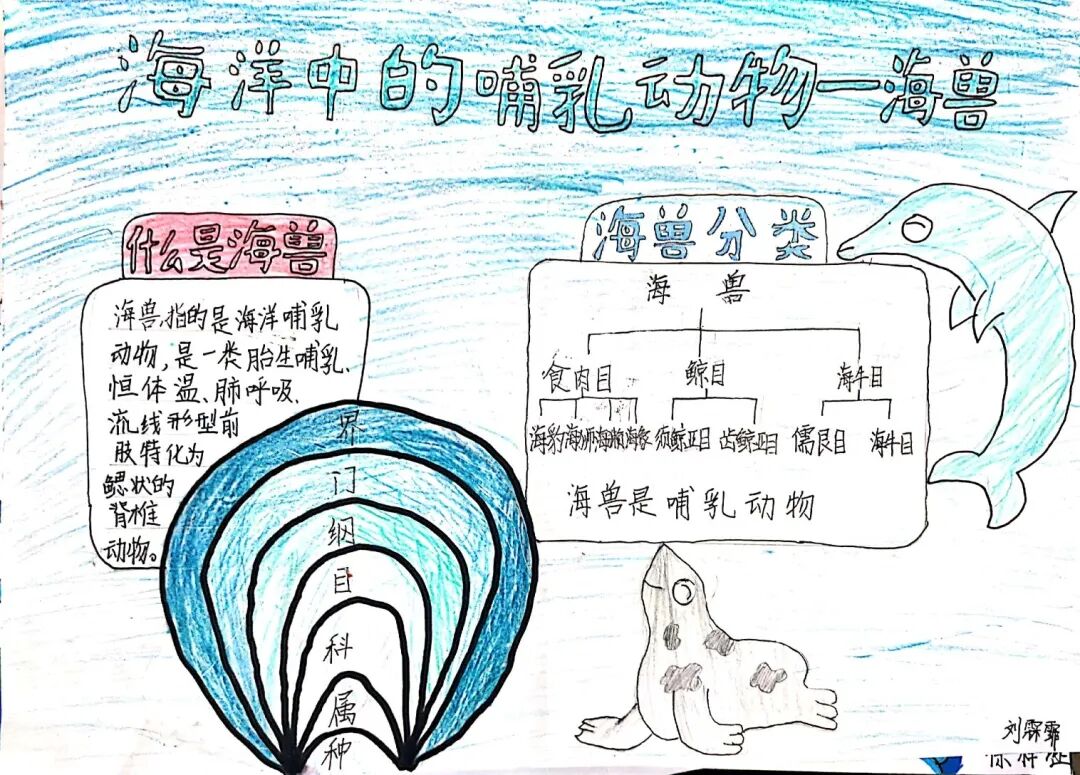 海洋中的哺乳动物一海兽
什么是海兽
海兽,指的是海洋哺乳
动物,是一类胎生哺乳、
恒体温、肺呼吸、
流线形型前
肢特化为
鳃状的
脊椎
动物。
界
门
纲
目
科
属
种
海兽分类
海 兽
食肉目 鲸目 海牛目
海豹 海狮 海象 须鲸亚目 齿鲸亚目 儒艮目 海牛目
海兽是哺乳动物
刘霖霏